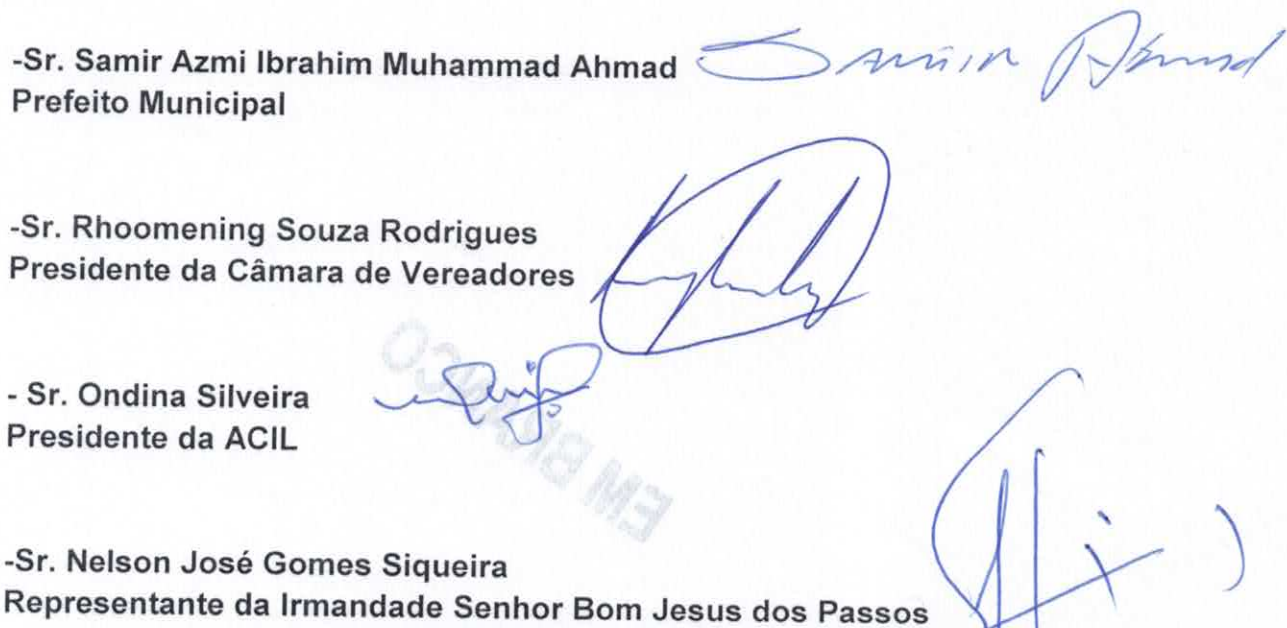 -Sr. Samir Azmi Ibrahim Muhammad Ahmad Samir Ahmad
Prefeito Municipal
-Sr. Rhoomening Souza Rodrigues
Presidente da Câmara de Vereadores
- Sr. Ondina Silveira
Presidente da ACIL
EM BRANCO
-Sr. Nelson José Gomes Siqueira
Representante da Irmandade Senhor Bom Jesus dos Passos